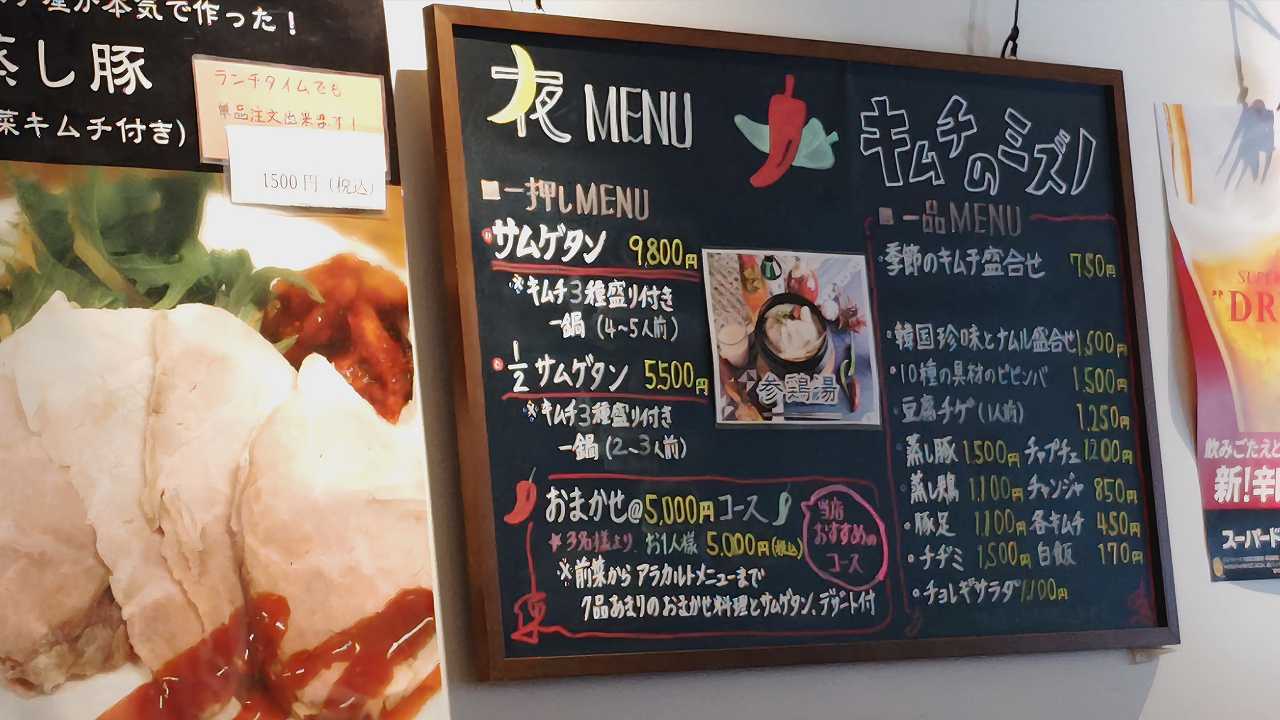 が本気で作った!
蒸し豚
菜キムチ付き)
ランチタイムでも
単品注文出来ます!
1500円(税込)
夜 MENU
キムチのミズノ
■一押しMENU
サムゲタン 9,800円
※キムチ3種盛り付き
一鍋(4~5人前)
1/2 サムゲタン 5,500円
※キムチ3種盛り付き
一鍋(2~3人前)
参鶏湯
おまかせ@5,000円コース
★3名様より お1人様 5,000円(税込)
※前菜から アラカルトメニューまで
7品あまりのおまかせ料理とサムゲタン、デザート付
当店
おすすめの
コース
■一品MENU
・季節のキムチ盛合せ 750円
・韓国珍味とナムル盛合せ 1,500円
・10種の具材のビビンバ 1,500円
・豆腐チゲ(1人前) 1,250円
・蒸し豚 1,500円 チャプチェ 1200円
・蒸し鶏 1,100円 チャンジャ 850円
・豚足 1,100円 各キムチ 450円
・チヂミ 1,500円 白飯 170円
・チョレギサラダ 1,100円
SUPE
"DR
飲みごたえと
新!辛
スーパード